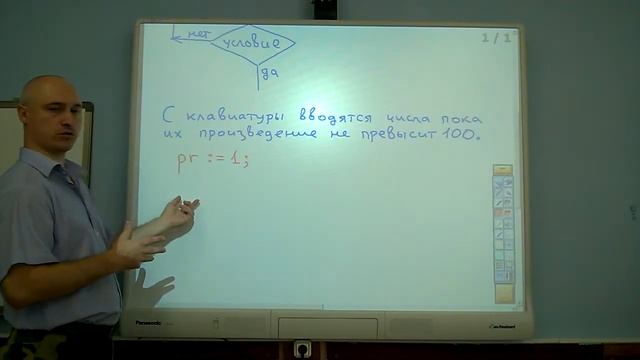 1/1
нет
условие
да
С клавиатуры вводятся числа пока
их произведение не превысит 100.
pr := 1;
Panasonic